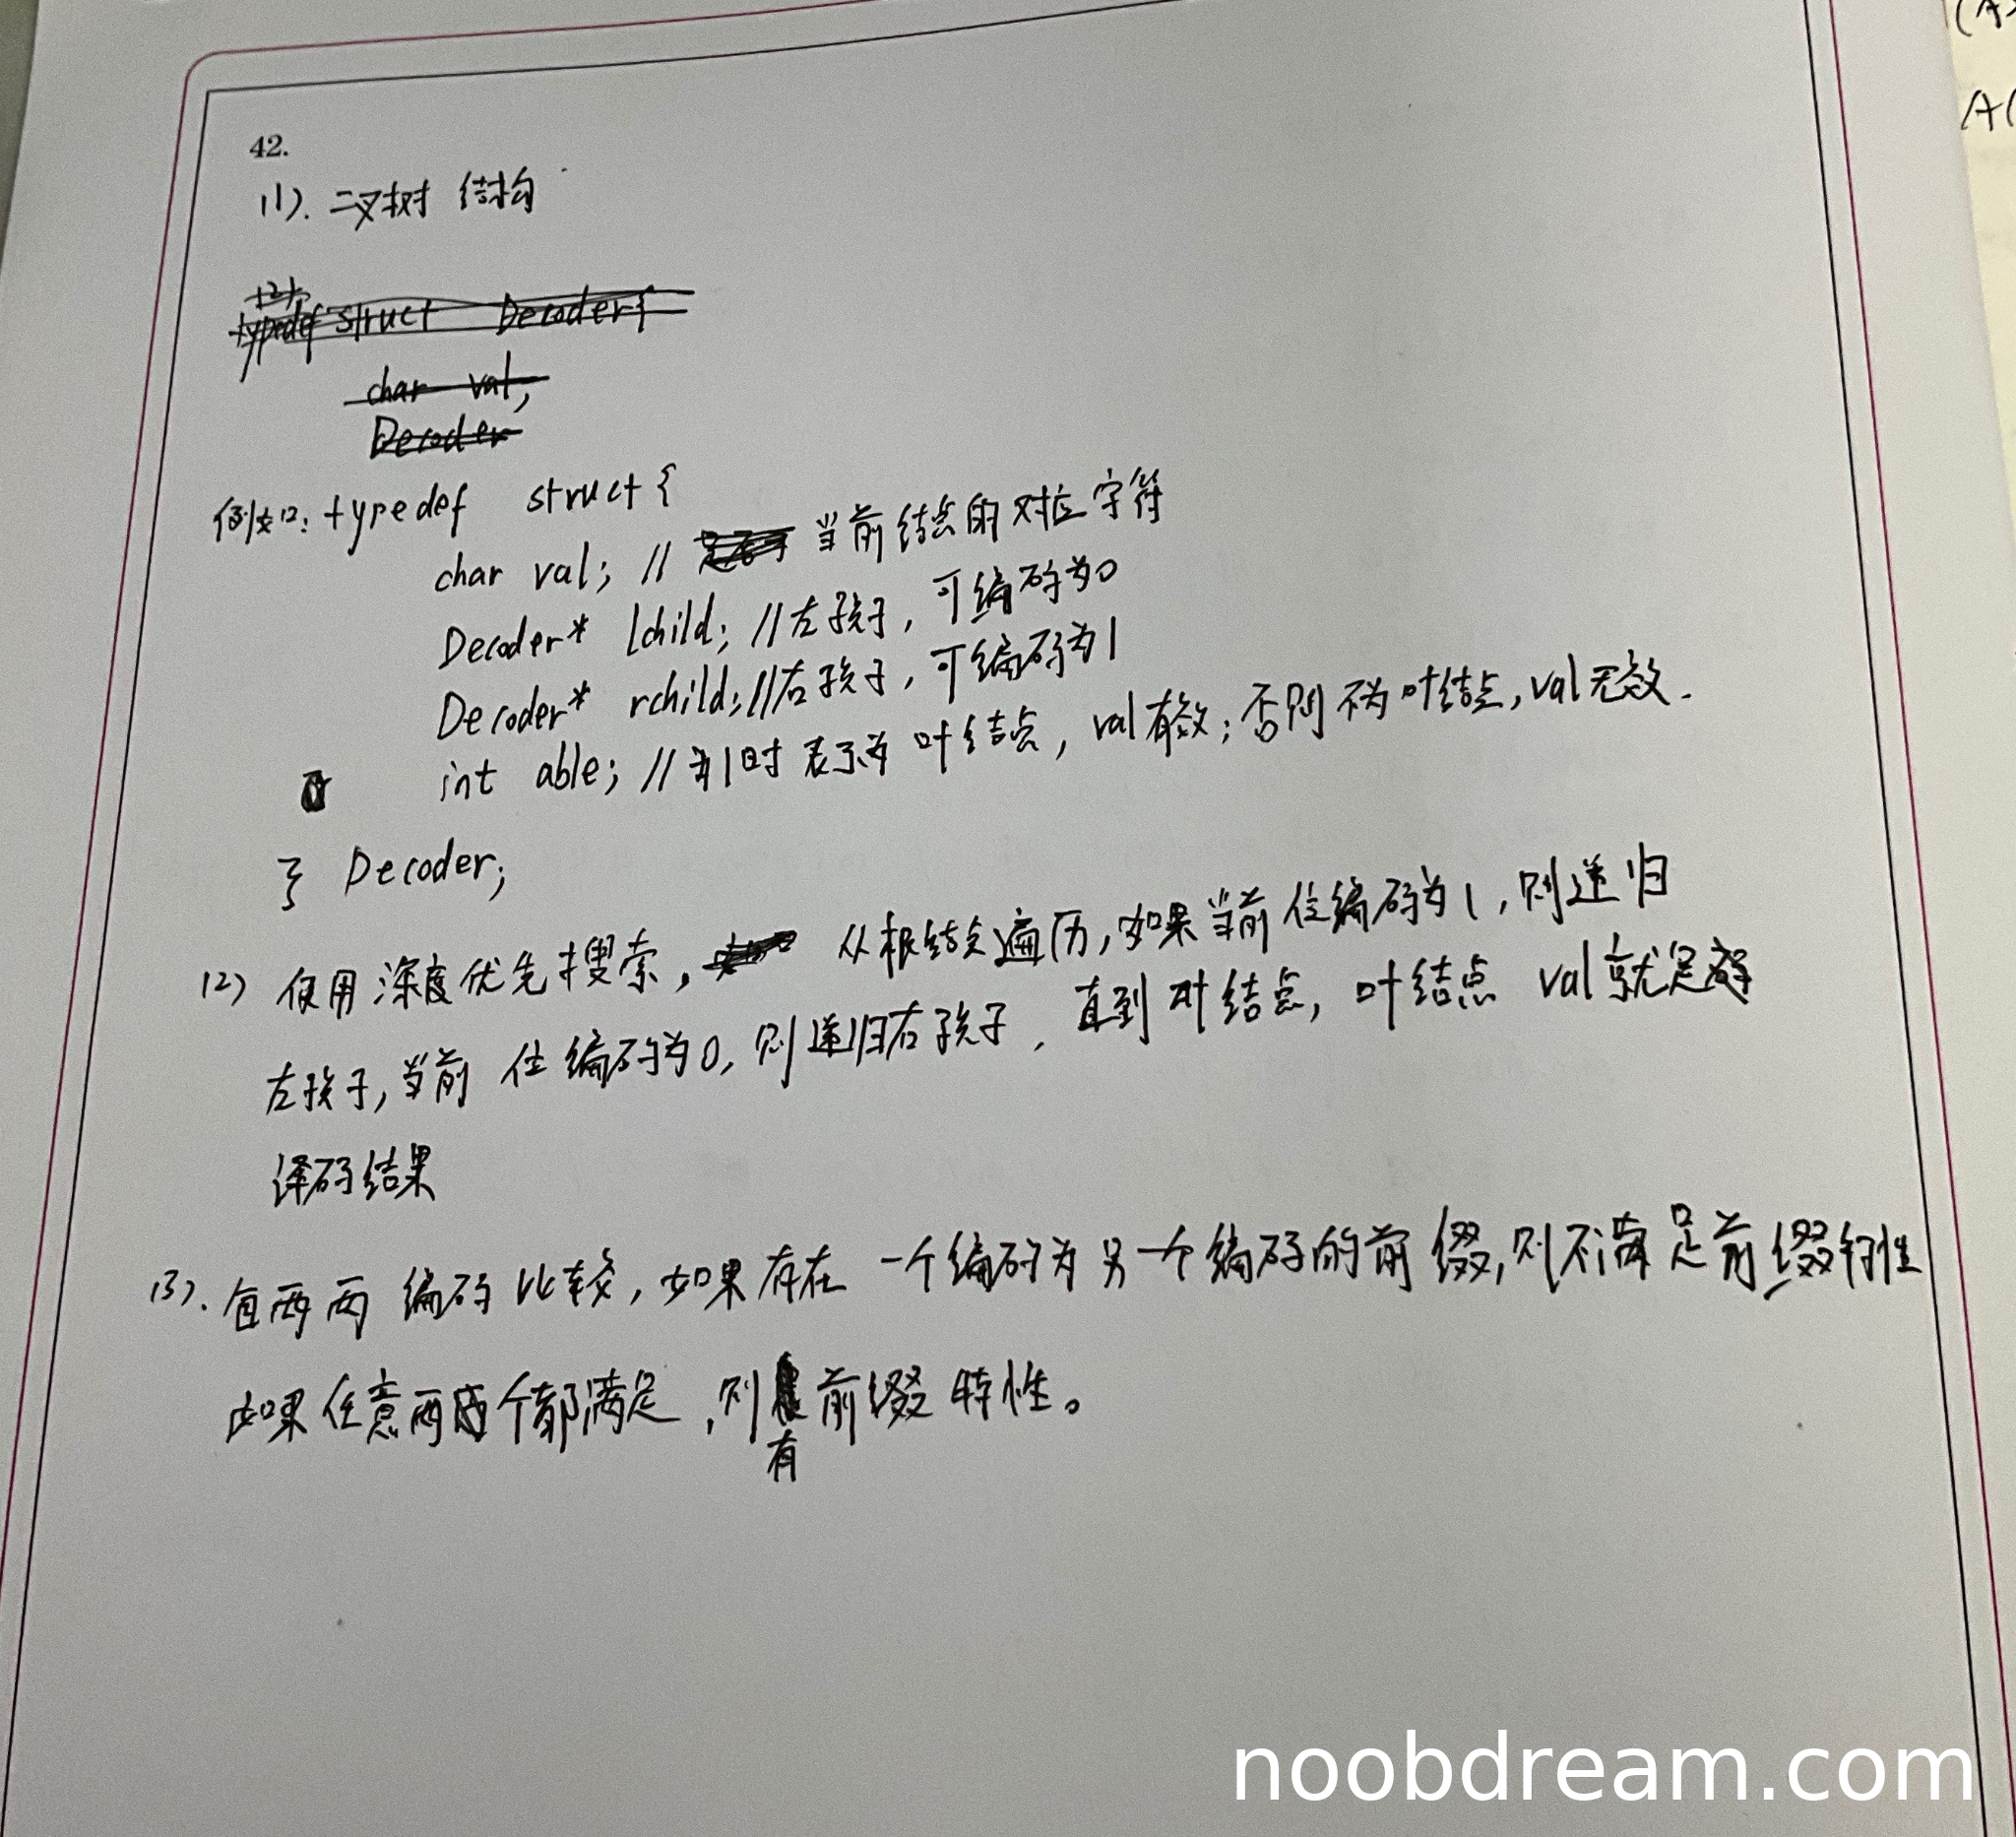 42.
(1). 二叉树 结构
(2)
typedef struct Decoder{
char val;
Decoder
例如: typedef struct {
char val; // 当前结点的对应字符
Decoder* lchild; //左孩子, 可编码为0
Decoder* rchild; //右孩子, 可编码为1
int able; // 为1时表示为叶结点, val有效; 否则不为叶结点, val无效.
} Decoder;
(2) 使用深度优先搜索, 从根结点遍历, 如果当前位编码为1, 则递归
左孩子, 当前位编码为0, 则递归右孩子, 直到叶结点, 叶结点 val就是
译码结果
(3). 两两编码比较, 如果存在一个编码为另一个编码的前缀, 则不满足前缀特性
如果任意两个都满足, 则有前缀特性。
(A
A(
noobdream.com